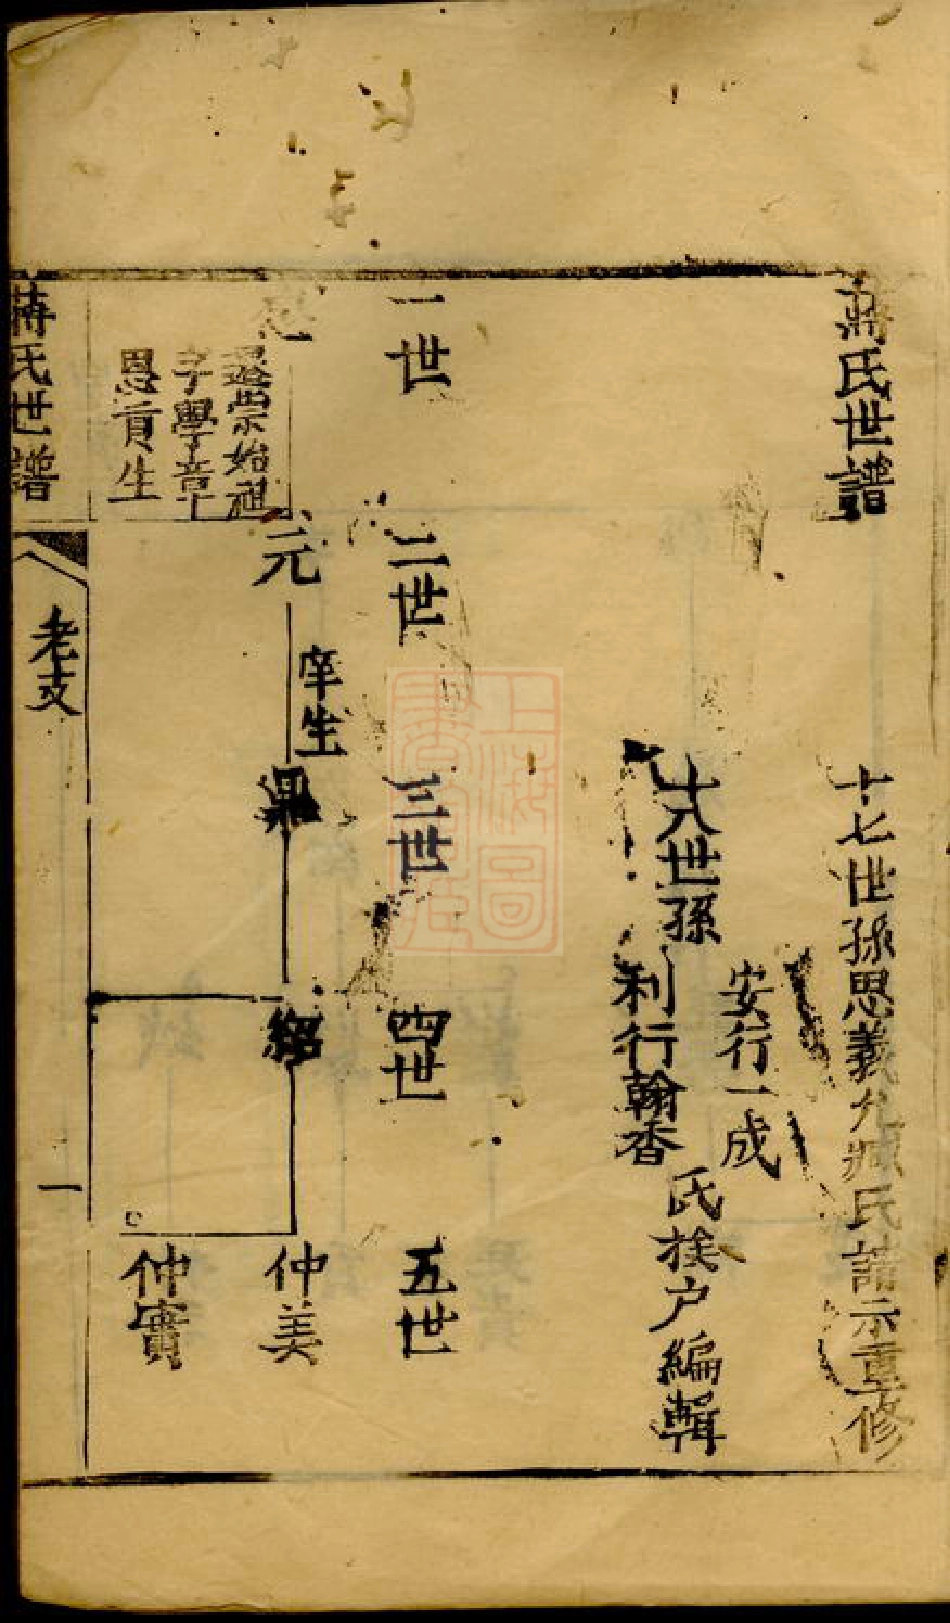 蔣氏世譜
十七世孫思義
氏請示重修
安行一成
十八世孫
利行翰香
氏族户編輯
一世
二世
三世
四世
五世
遷崇始祖
字學章
恩貢生
元
辛生
鼎
紹
仲美
仲實
蔣氏世譜
老支
一
上海圖書館